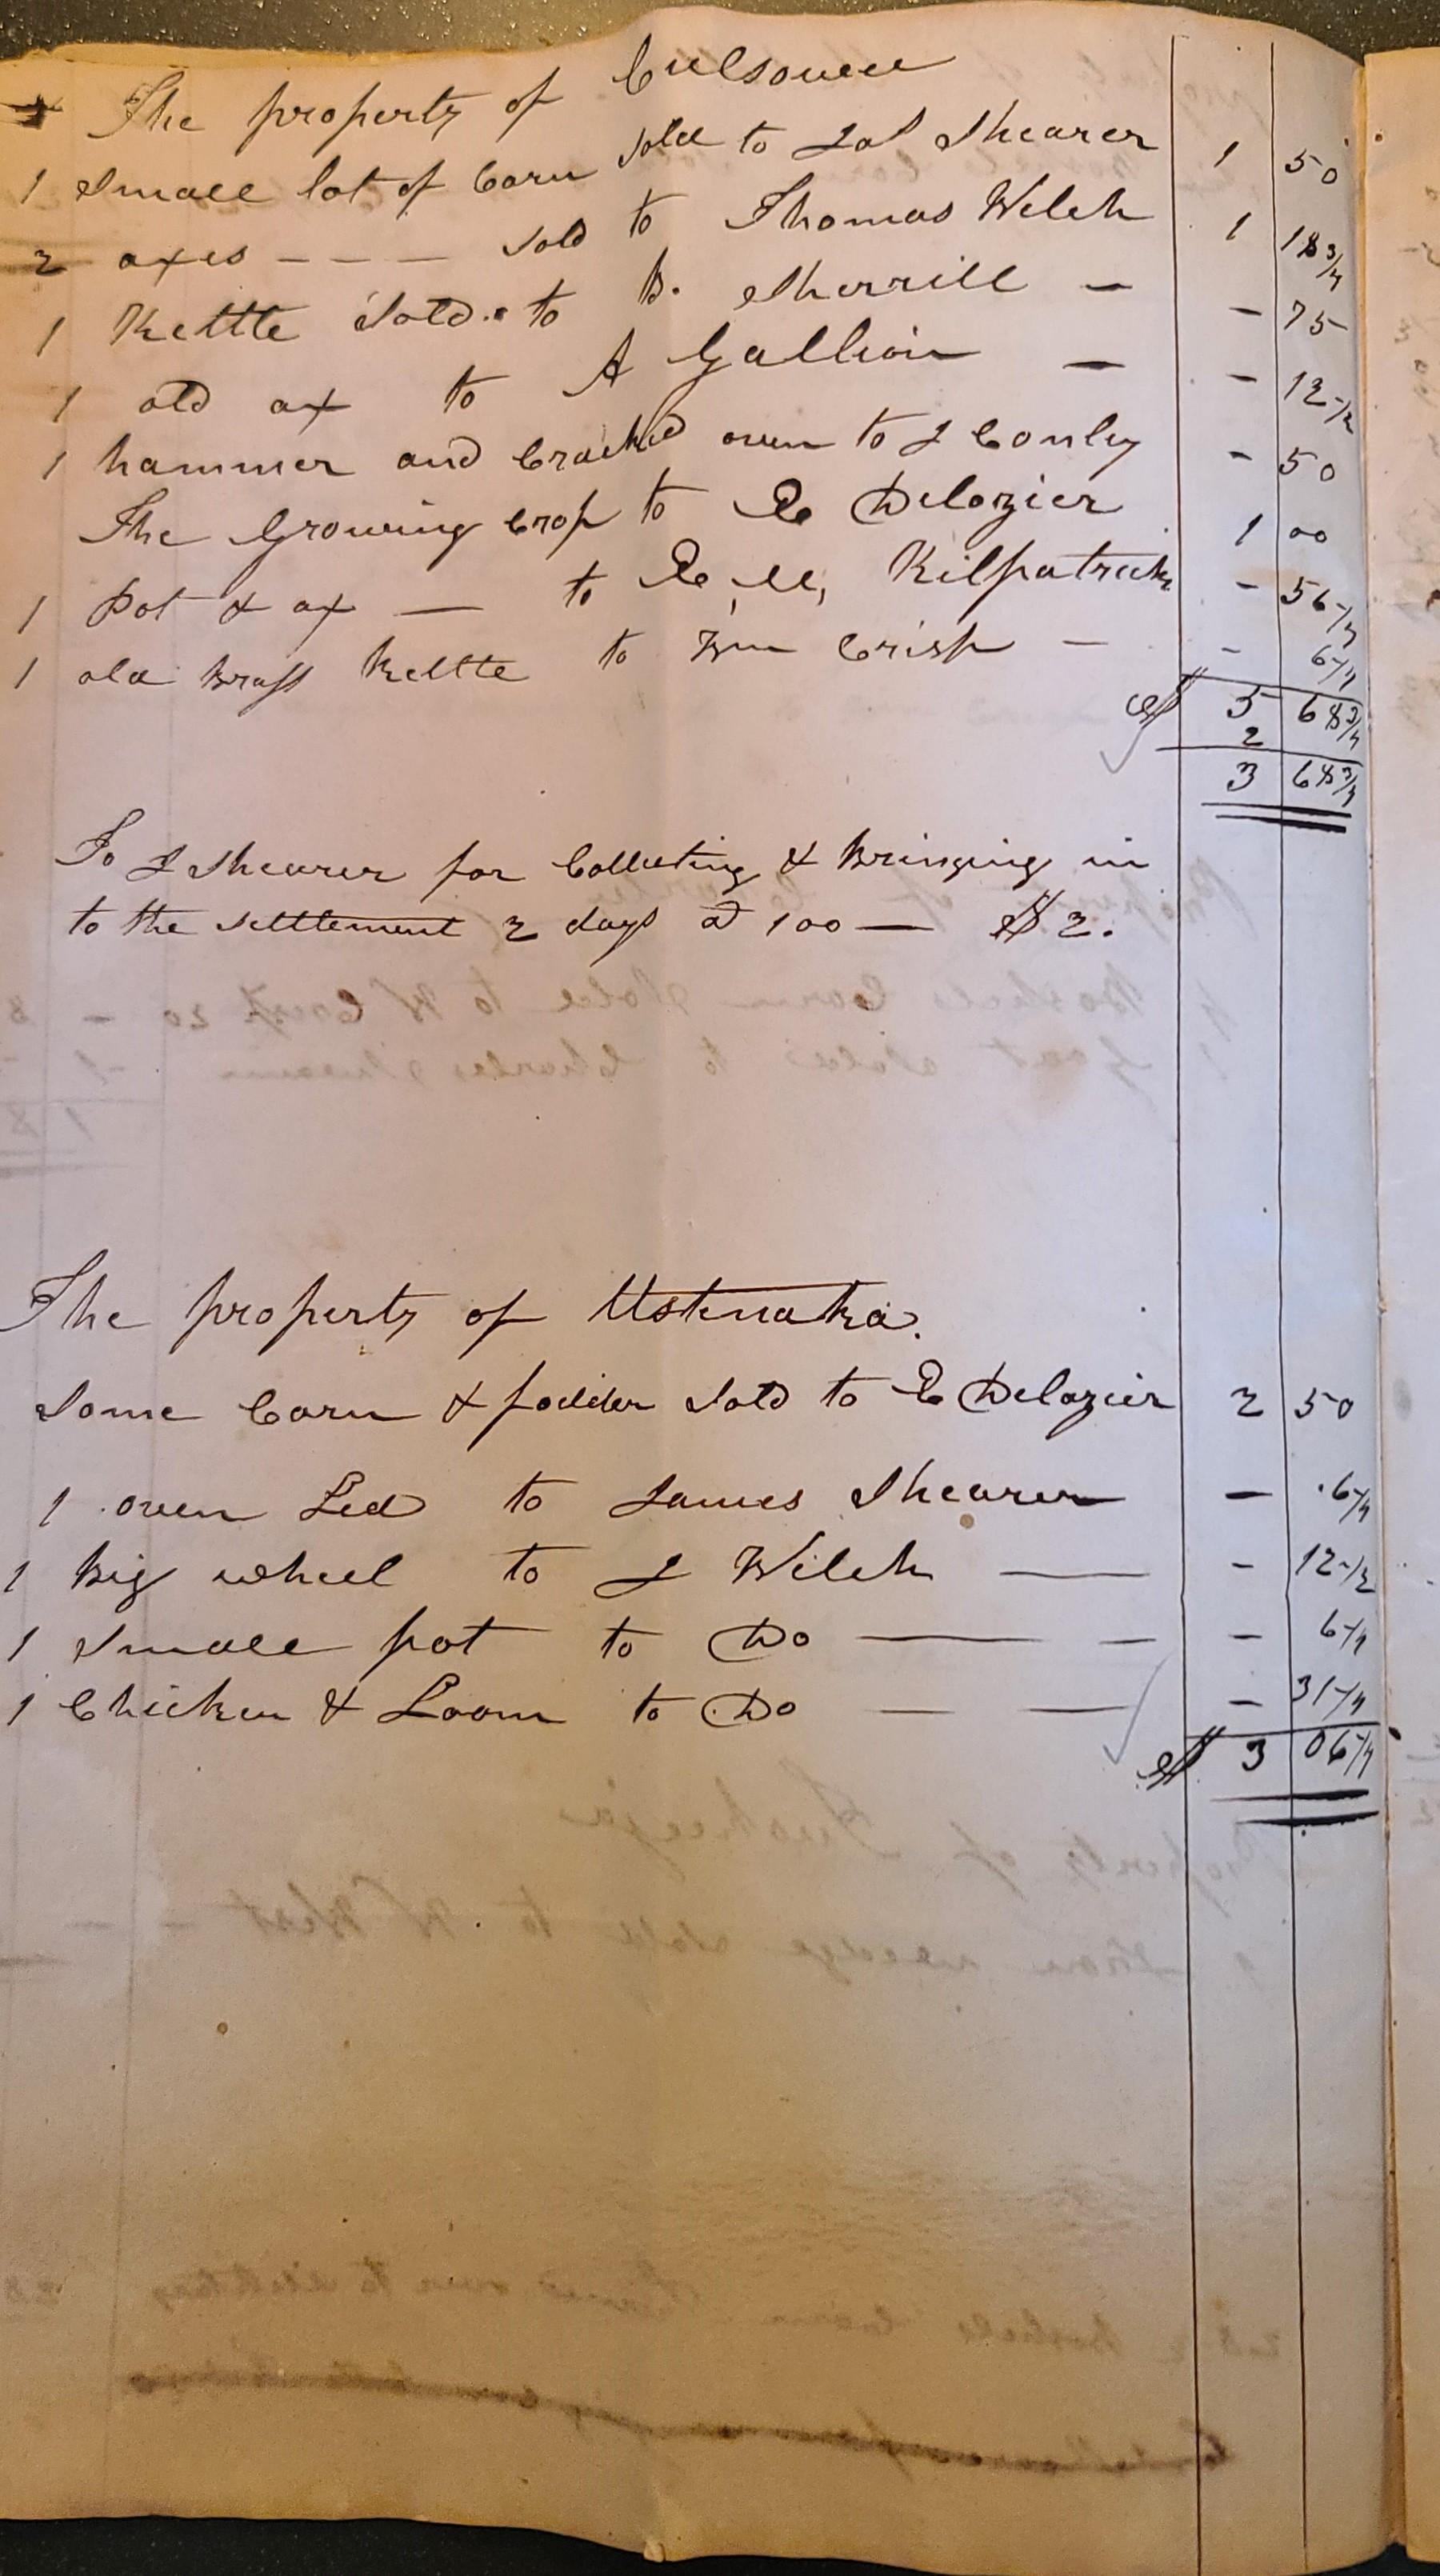 The property of Culsowee
1 Small lot of Corn sold to Jas Shearer 1 50
2 axes - - - sold to Thomas Welch 1 18 3/4
1 Kettle Sold to B. Sherrill - - 75
1 old ax to A Gallion - - 12 1/2
1 hammer and Cracked oven to J Conley - 50
The Growing Crop to E Delozier 1 00
1 Pot & ax - to E, M, Kilpatrick - 56 1/4
1 old Brass Kettle to Wm Crisp - - 6 1/4
$ 5 68 3/4
2
3 68 3/4
To J Shearer for Collecting & Bringing in
to the settlement 2 days @ 100 - $ 2.
The property of Ustenaka.
Some Corn & fodder Sold to E Delozier 2 50
1 oven Led to James Shearer - 6 1/4
1 Big wheel to J Welch - - 12 1/2
1 Small pot to Do - - - 6 1/4
1 Chicken & Loom to Do - - - 31 1/4
$ 3 06 1/4